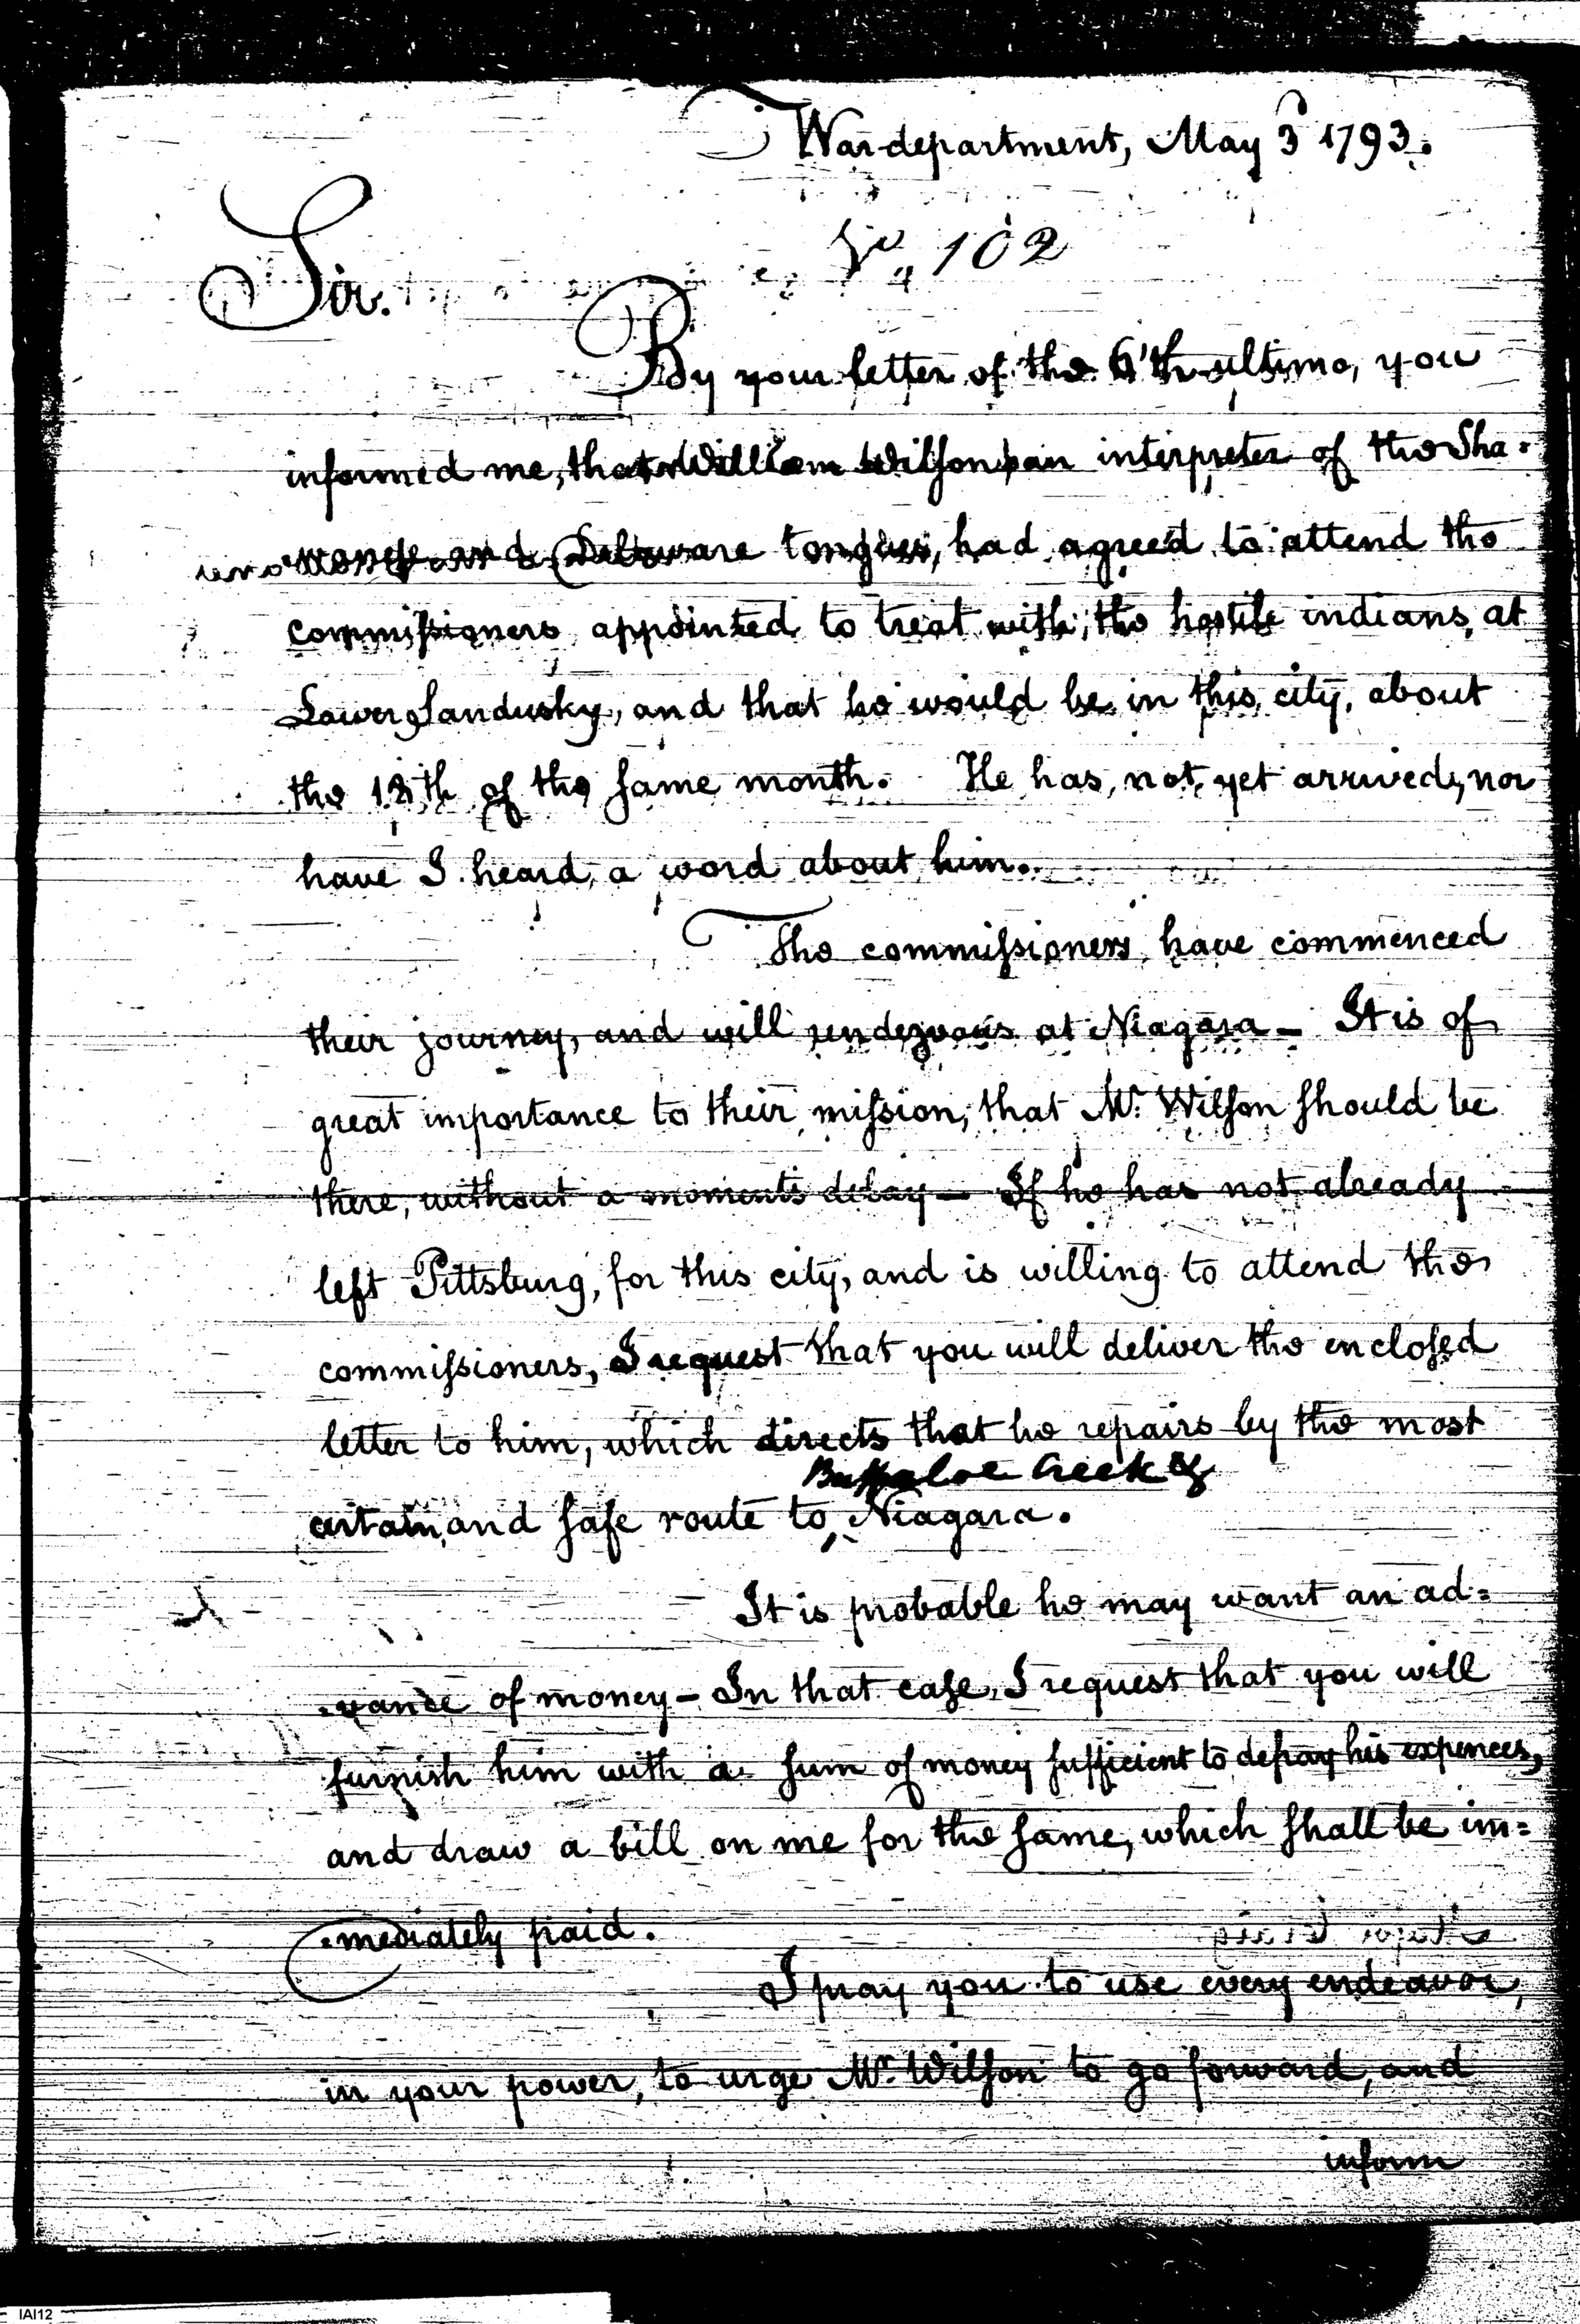 War department, May 3 1793.
No. 102
Sir.
By your letter of the 6th ultimo, you
informed me, that William Wilson, an interpreter of the Sha=
wanese and Delaware tongues, had agreed to attend the
commissioners appointed to treat with the hostile indians, at
Lower Sandusky, and that he would be in this city, about
the 18th of the same month. He has, not, yet arrived, nor
have I heard, a word about him.
The commissioners, have commenced
their journey, and will rendezvous at Niagara – It is of
great importance to their mission, that Mr. Wilson should be
there, without a moments delay – If he has not already
left Pittsburg, for this city, and is willing to attend the
commissioners, I request that you will deliver the enclosed
letter to him, which directs that he repairs by the most
Buffaloe Creek &
certain, and safe route to ^ Niagara.
It is probable he may want an ad=
=vance of money – In that case, I request that you will
furnish him with a sum of money sufficient to defray his expences,
and draw a bill on me for the same, which shall be im=
=mediately paid.
I pray you to use every endeavor,
in your power, to urge Mr. Wilson to go forward, and
inform
IAI12